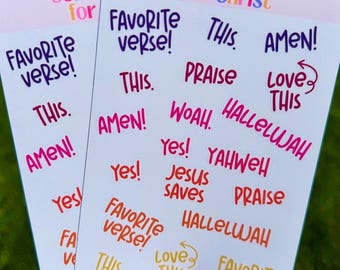 for
Christ
FAVORITE
VERSE!
THIS.
AMEN!
YES!
FAVORITE
VERSE!
THIS.
AMEN!
THIS.
PRAISE
LOVE
THIS
AMEN!
WOAH.
HALLELUJAH
YES!
YAHWEH
YES!
JESUS
SAVES
PRAISE
FAVORITE
VERSE!
HALLELUJAH
THIS.
LOVE
THIS
FAVORITE